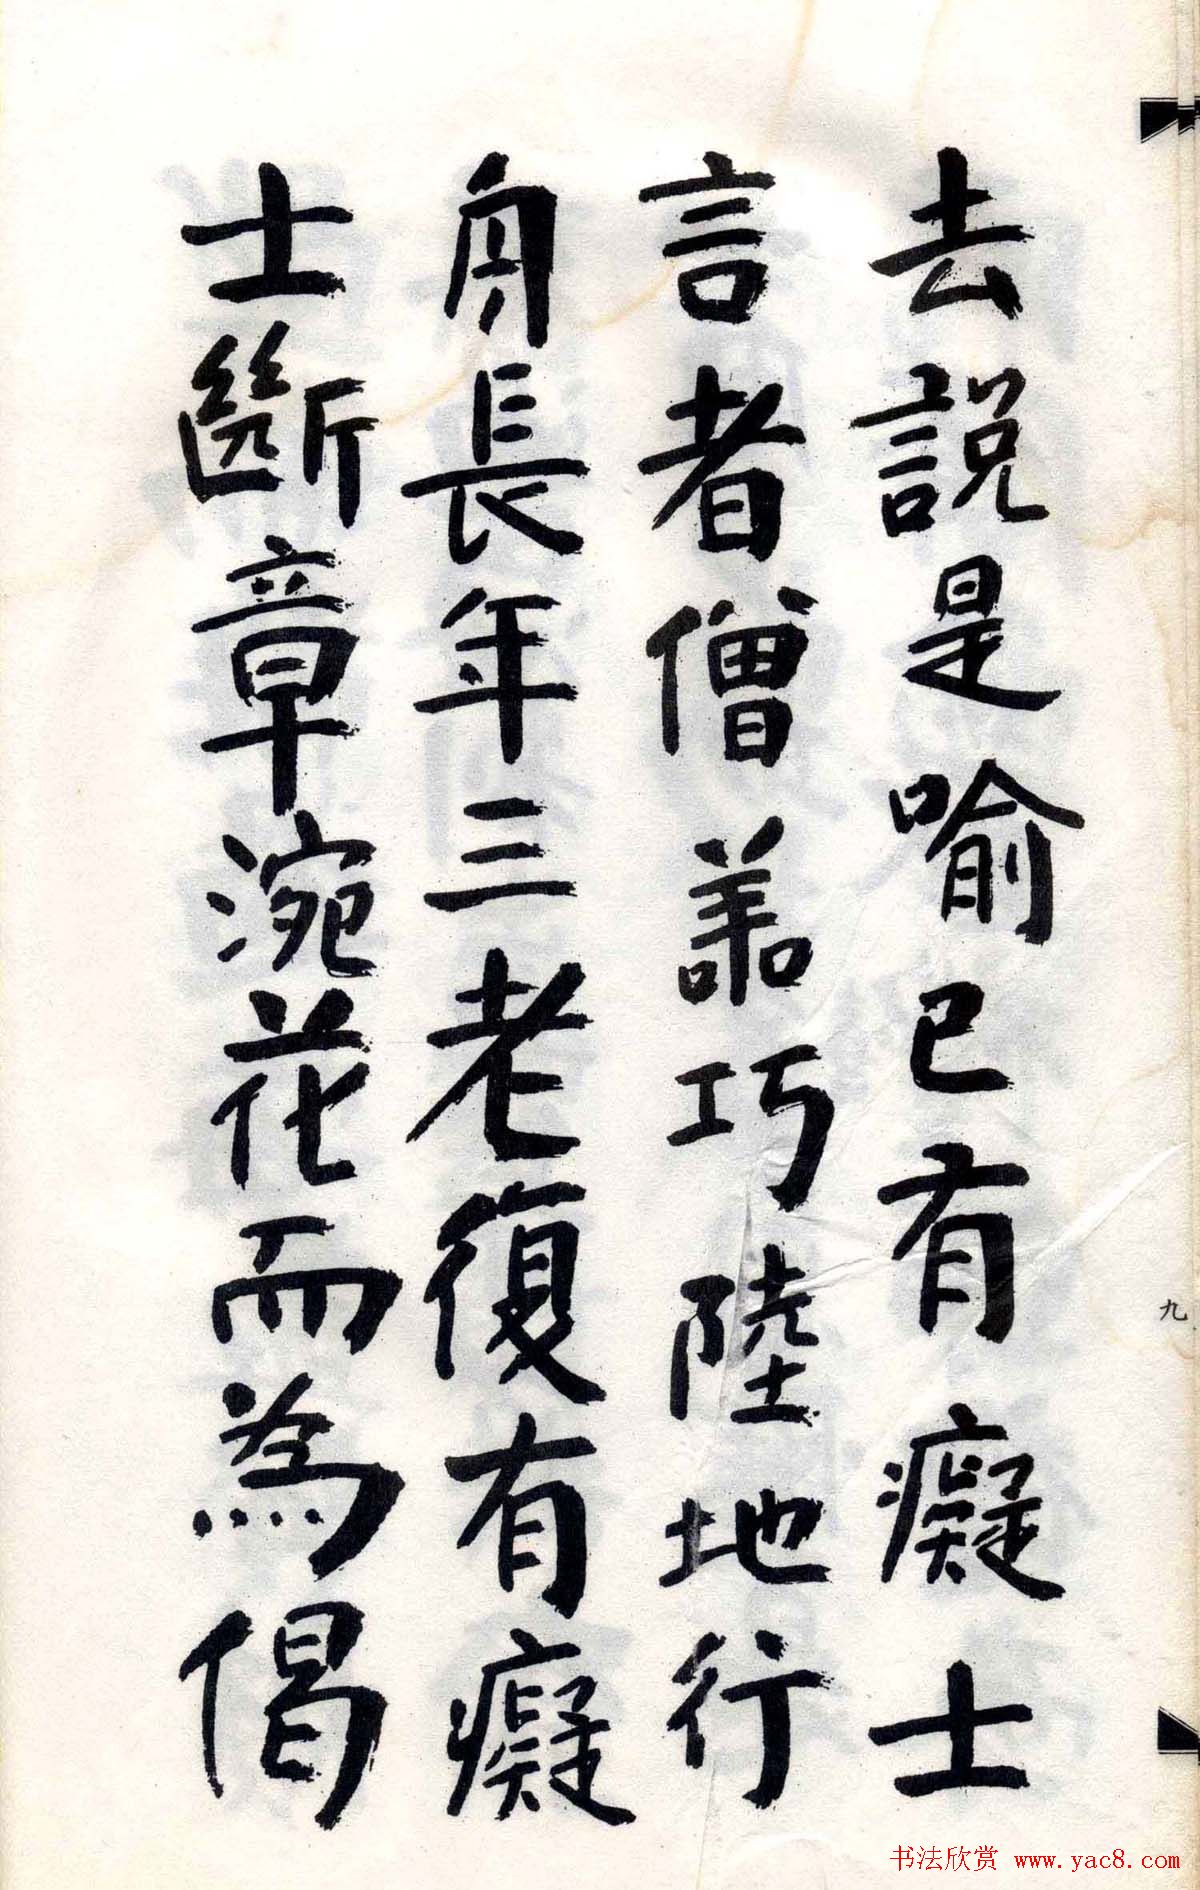 去說是喻已有癡士
言者僧善巧陸地行
舟長年三老復有癡
士斷章涴花而為偈
九
书法欣赏 www.yac8.com